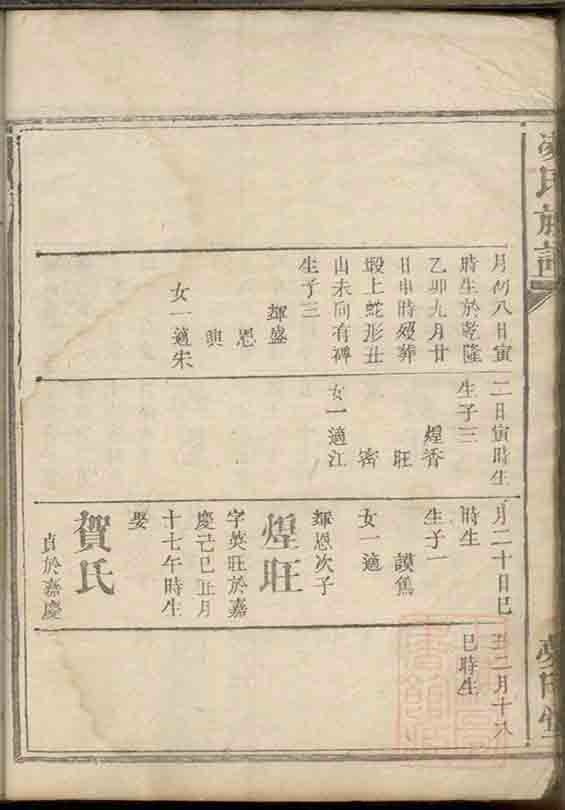 氏族譜
月初八日寅
時生於乾隆
乙卯九月廿
日申時歿葬
塅上蛇形丑
山未向有碑
生子三
輝盛
恩
興
女一適朱
二日寅時生
生子三
煌香
旺
密
女一適江
月二十日巳
時生
生子一
謨篤
女一適
輝恩次子
煌旺
字英旺於嘉
慶己巳正月
十七午時生
娶
賀氏
貞於嘉慶
二月十八
巳時生